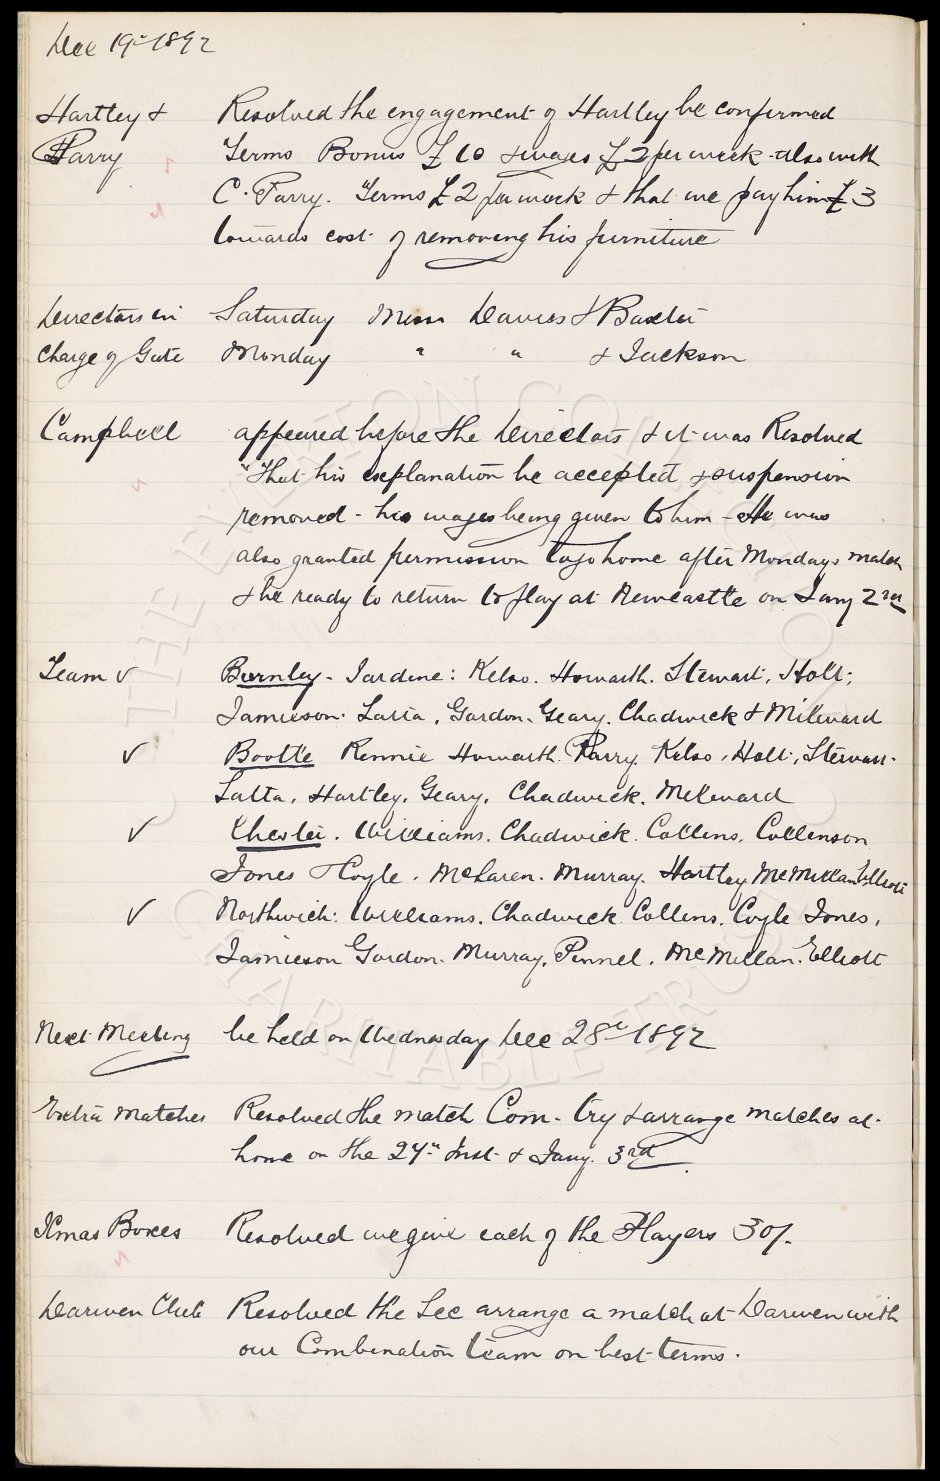 Dec 19th 1892
Hartley & Resolved the engagement of Hartley be confirmed
Parry Terms Bonus £10 & wages £3 per week - also with
C. Parry. Terms £2 per week & that we pay him £3
towards cost of removing his furniture
Directors in Saturday Messrs Davies & Baxter
Charge of Gate Monday " " & Jackson
Campbell appeared before the Directors & it was Resolved
"That his explanation be accepted & suspension
removed - his wages being given to him - He was
also granted permission to go home after Mondays match
& be ready to return to play at Newcastle on Jany 2nd
Team ✓ Burnley - Jardine: Kelso. Howarth. Stewart, Holt;
Jamieson. Latta, Gordon. Geary. Chadwick & Milward
✓ Bootle Rennie Howarth. Parry. Kelso, Holt, Stewart.
Latta, Hartley, Geary, Chadwick. Milward
✓ Chester. Williams. Chadwick. Collins. Collinson
Jones Coyle. McLaren. Murray. Hartley McMillan Elliott
✓ Northwich: Williams. Chadwick Collins. Coyle Jones,
Jamieson Gordon. Murray. Pinnel. McMillan. Elliott
Next Meeting be held on Wednesday Dec 28th 1892
Extra Matches Resolved the match Com. try & arrange matches at
home on the 24th Inst & Jany. 3rd
Xmas Boxes Resolved we give each of the Players 30/-
Darwen Club Resolved the Sec arrange a match at Darwen with
our Combination team on best terms.
THE EVERTON COLLECTION
CHARITABLE TRUST